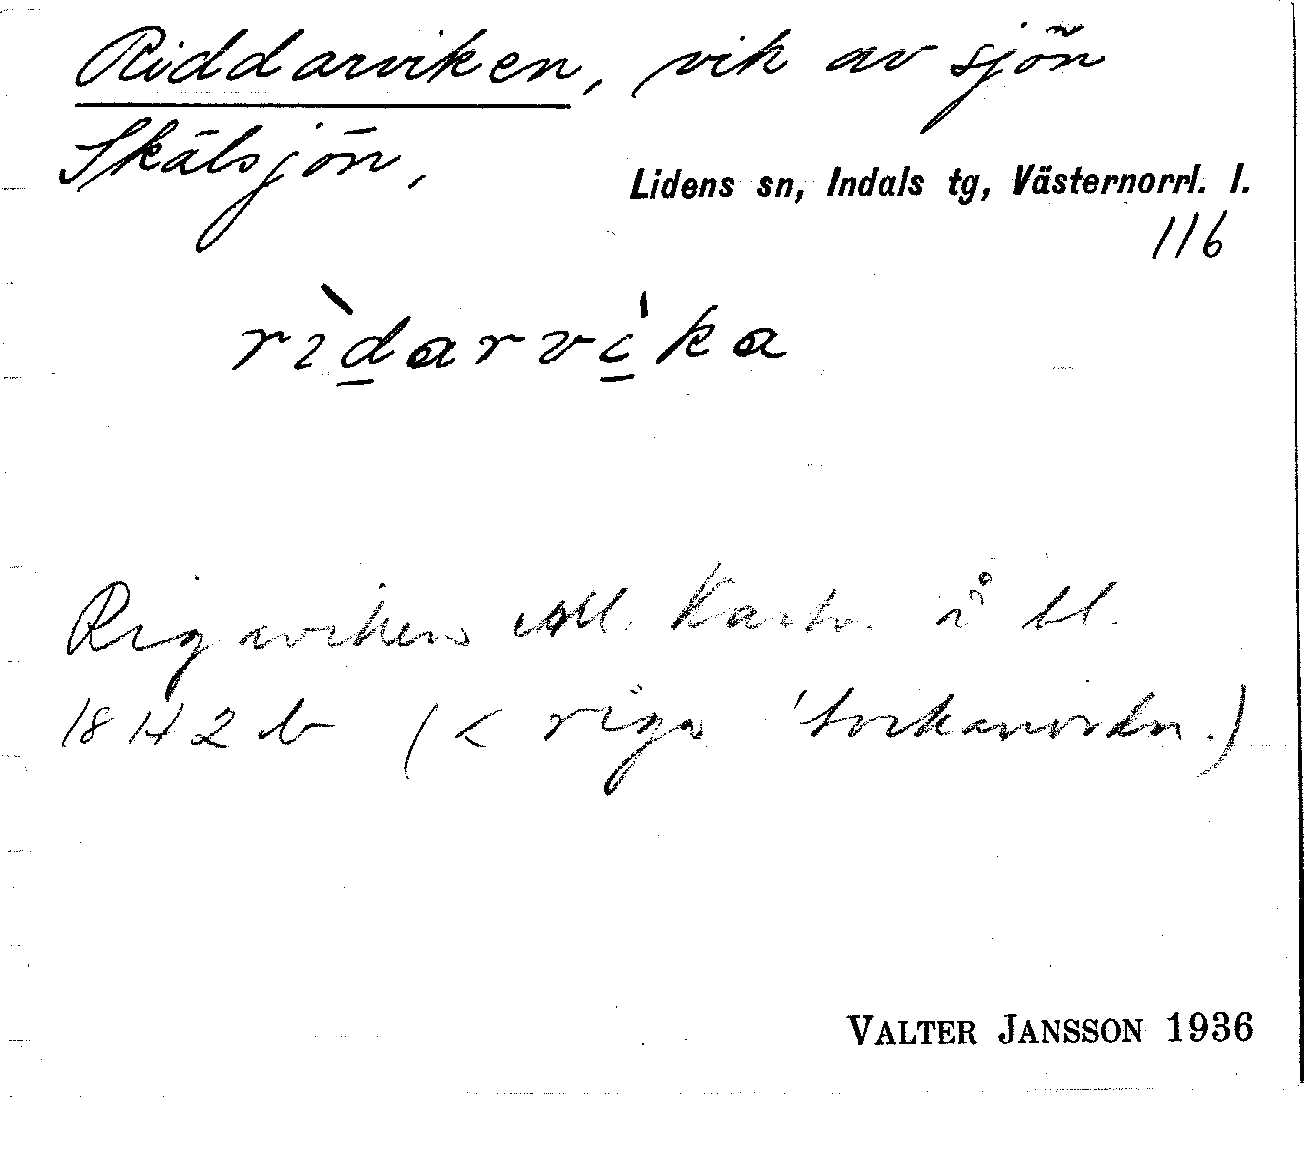 Riddarviken, vik av sjön
Skälsjön,
Lidens sn, Indals tg, Västernorrl. l.
116
rìdarvika
Rigaviken All. Kartv. å bl.
1842 b (< riga 'torkanordn.)
VALTER JANSSON 1936